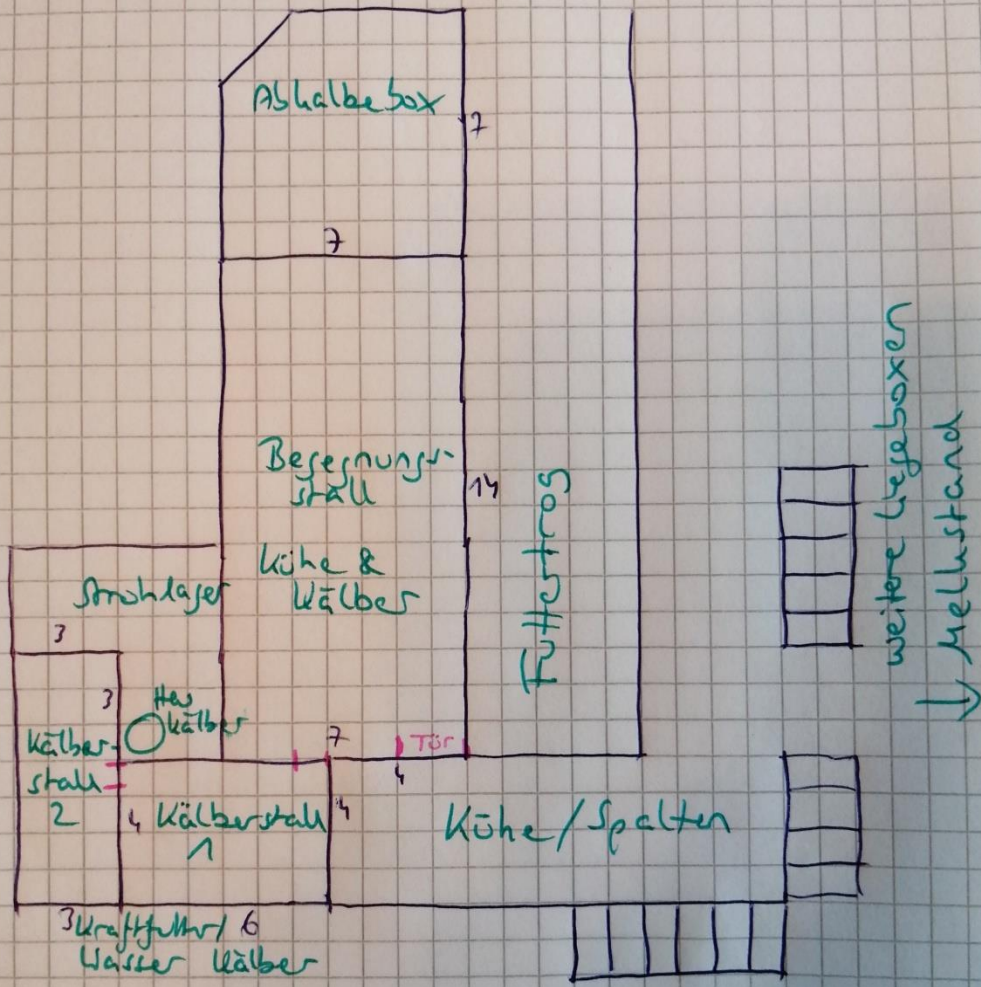 Abkalbebox
7
7
Begegnungs-
stall
14
Kühe &
Kälber
Futtertrog
weitere Liegeboxen
↓ Melkstand
Strohlager
3
3
Heu
Kälber
Kälber-
stall
2
7
Tür
4
4
Kälberstall
1
4
Kühe/Spalten
3
Kraftfutter/
6
Wasser Kälber